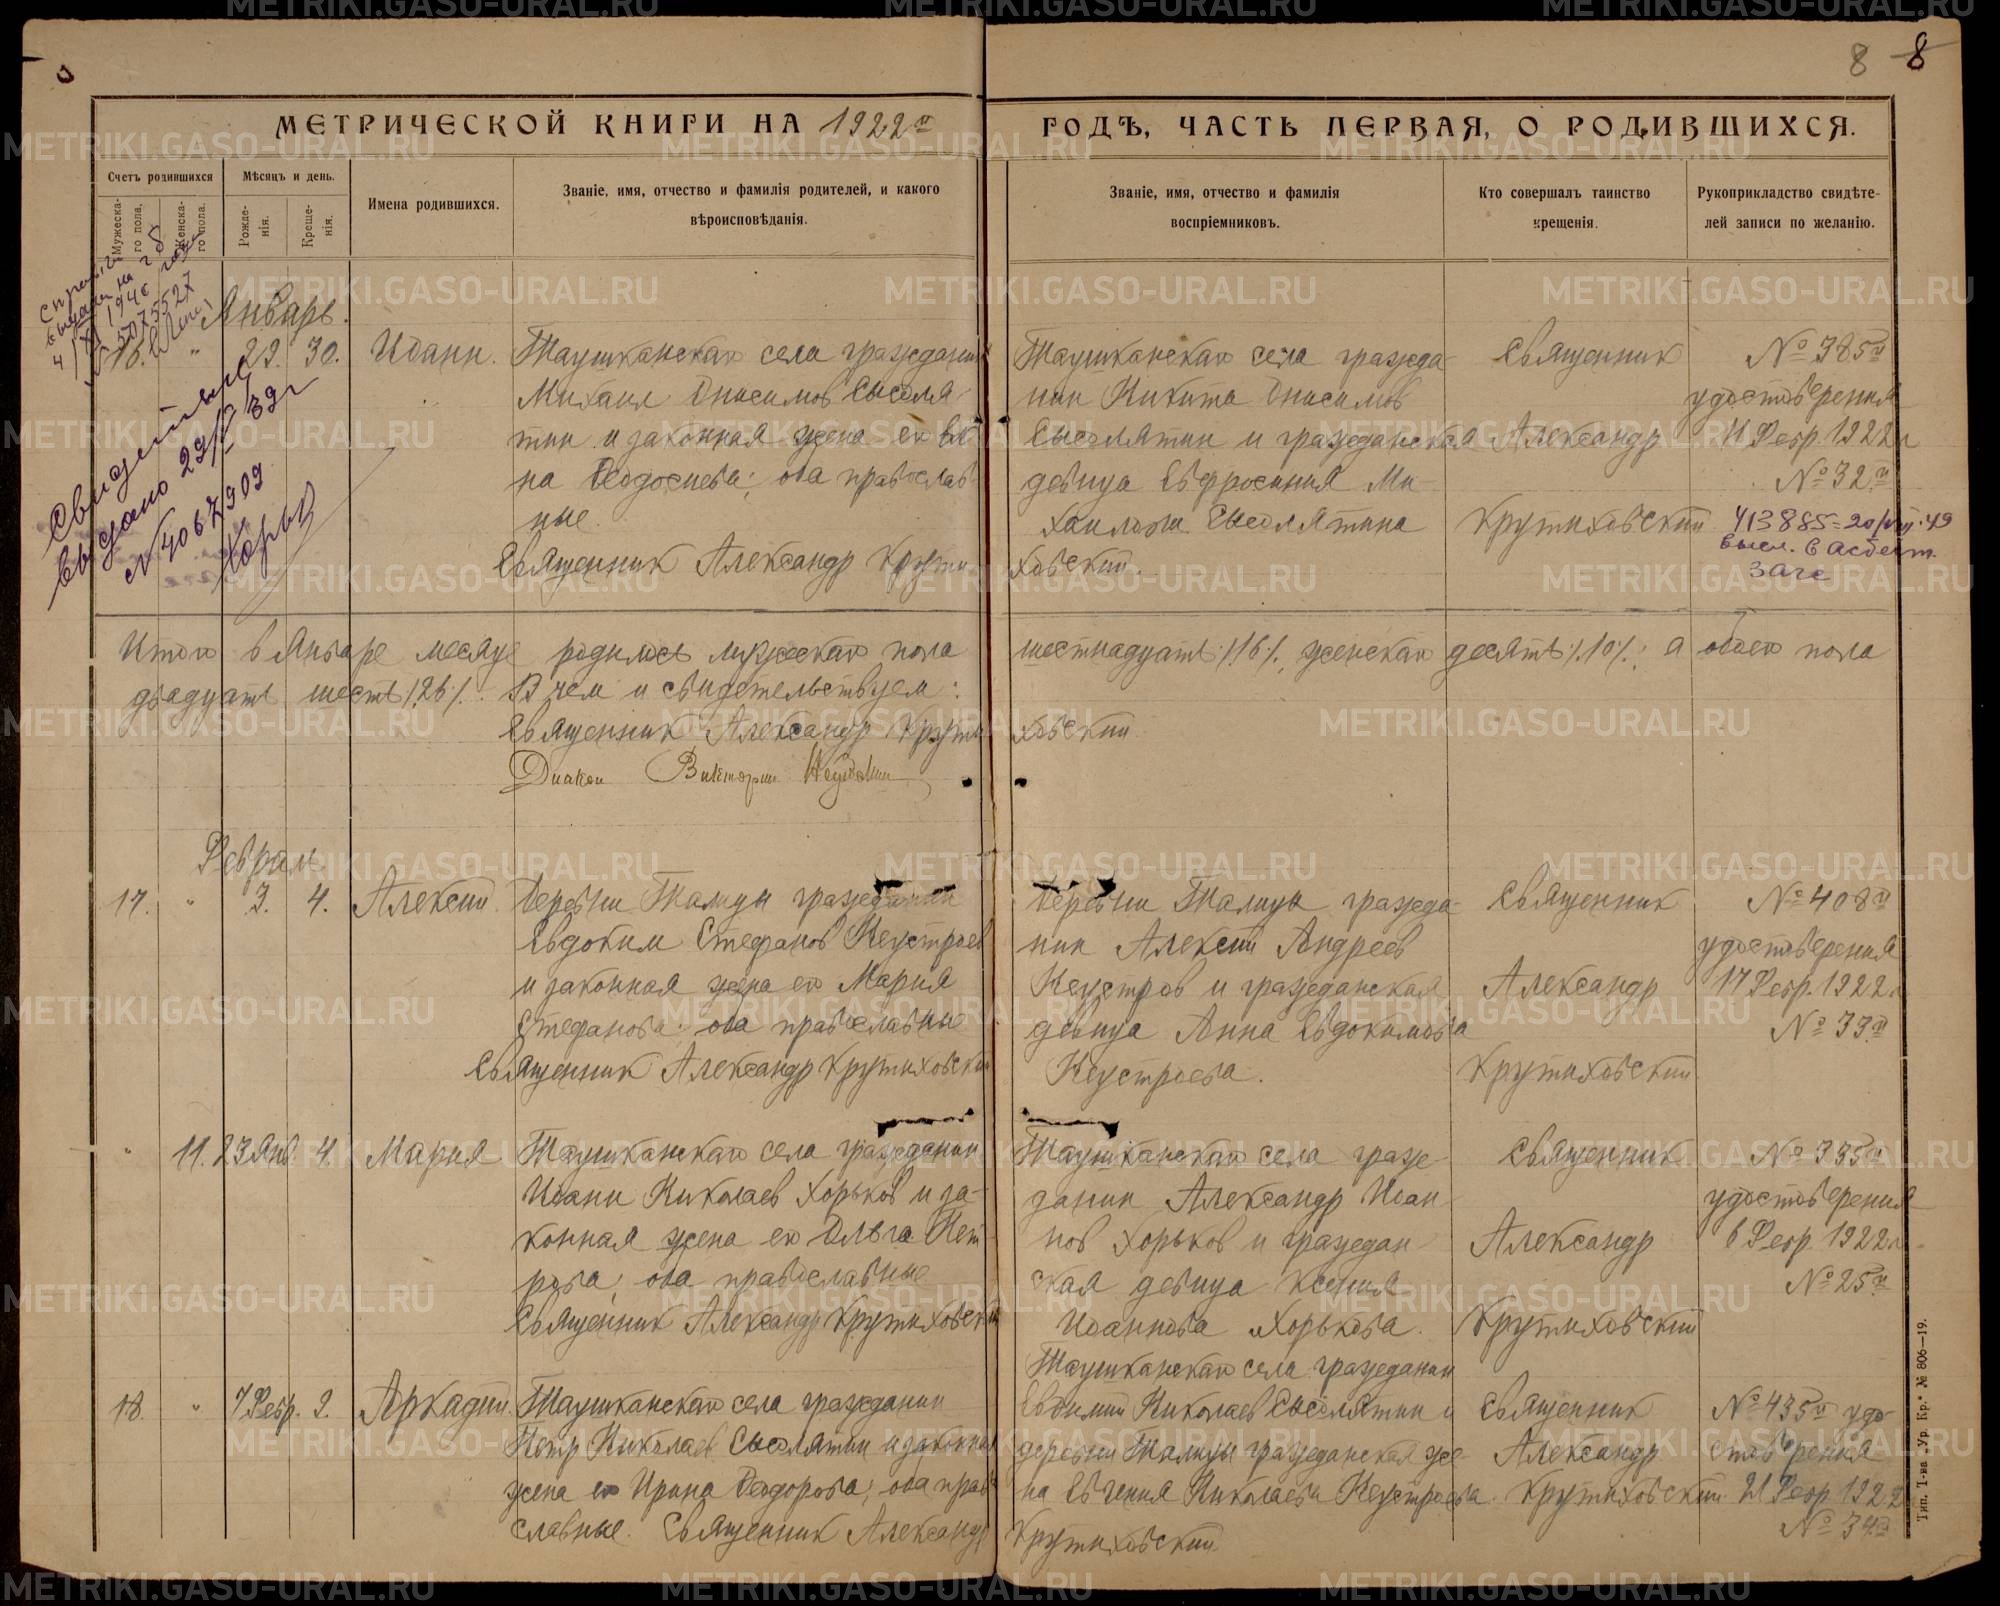 8 8
МЕТРИЧЕСКОЙ КНИГИ НА 1922й ГОДЪ, ЧАСТЬ ПЕРВАЯ, О РОДИВШИХСЯ.
Счетъ родившихся
Мужеска-го пола.
Женска-го пола.
Мѣсяцъ и день.
Рожде-нія.
Креще-нія.
Имена родившихся.
Званіе, имя, отчество и фамилія родителей, и какого
вѣроисповѣданія.
Званіе, имя, отчество и фамилія
воспріемниковъ.
Кто совершалъ таинство
крещенія.
Рукоприкладство свидѣте-
лей записи по желанію.
Январь.
16. " 29. 30. Иоанн.
Таушканскаго села гражданин
Михаил Онисимов Сысоля-
тин и законная жена его
на Феодосиева; оба православ-
ные.
Священник Александр Крутиховский.
Таушканскаго села гражда-
нин Никита Онисимов
Сысолятин и гражданская
девица Евфросиния Ми-
хаилова Сысолятина
Священник
Александр
Крутиховский
№ 385й
удостоверения
11 Февр. 1922 г
№ 32й
413885 = 20/VII-49
высл. в Асбест.
загс
Свидетельс
выдано 29/V-39 г
№ 4067909
Итого в Январе месяце родилось мужескаго пола шестнадцать /16/, женскаго десять /10/; а обоего пола
двадцать шесть /26/. В чем и свидетельствуем:
Священник Александр Крутиховский
Диакон Викторин
Февраль
17. " 3. 4. Алексий.
Деревни Талицы гражданин
Евдоким Стефанов Неустроев
и законная жена его Мария
Стефанова; оба православные
Священник Александр Крутиховский
Деревни Талицы гражда-
нин Алексий Андреев
Неустроев и гражданская
девица Анна Евдокимова
Неустроева.
Священник
Александр
Крутиховский
№ 408й
удостоверения
17 Февр. 1922 г
№ 33й
" 11. 23 Янв. 4. Мария
Таушканскаго села гражданин
Иоанн Николаев Хорьков и за-
конная жена его Ольга Пет-
рова; оба православные
Священник Александр Крутиховский
Таушканскаго села граж-
данин Александр Иоан-
нов Хорьков и граждан-
ская девица Ксения
Иоаннова Хорькова.
Священник
Александр
Крутиховский
№ 335й
удостоверения
6 Февр. 1922 г.
№ 25й
18. " 7 Февр. 9. Аркадий.
Таушканскаго села гражданин
Петр Николаев Сысолятин и законная
жена его Ирина Феодорова; оба право-
славные. Священник Александр Крутиховский
Таушканскаго села гражданин
Евфимий Николаев Сысолятин и
деревни Талицы гражданская же-
на Евгения Николаева Неустроева.
Священник
Александр
Крутиховский
№ 435й удо-
стоверения
21 Февр 1922
№ 34й
Тип. Т-ва „Ур. Кр." № 806—19.
METRIKI.GASO-URAL.RU